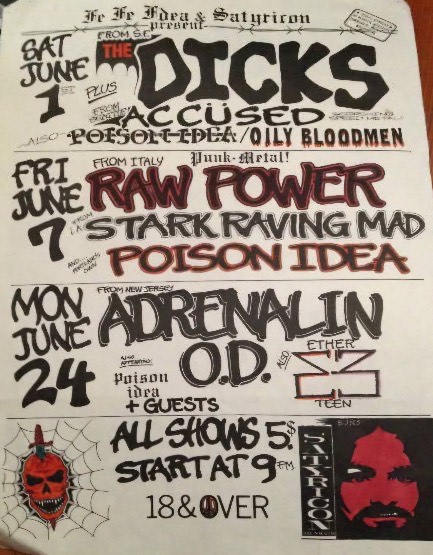 Fe Fe Fdea & Satyricon
present
SAT
JUNE
1ST
FROM S.F.
THE DICKS
PLUS
FROM
ACCÜSED
SPEED METAL
ALSO
POISON IDEA/OILY BLOODMEN
FRI
JUNE
7
FROM ITALY
Punk-Metal!
RAW POWER
FROM L.A.
STARK RAVING MAD
AND
OWN
POISON IDEA
MON
JUNE
24
FROM NEW JERSEY
ADRENALIN
O.D.
ALSO
APPEARING:
Poison
idea
+ GUESTS
ALSO
ETHER
TEEN
ALL SHOWS 5$
START AT 9PM
18 & OVER
SATYRICON